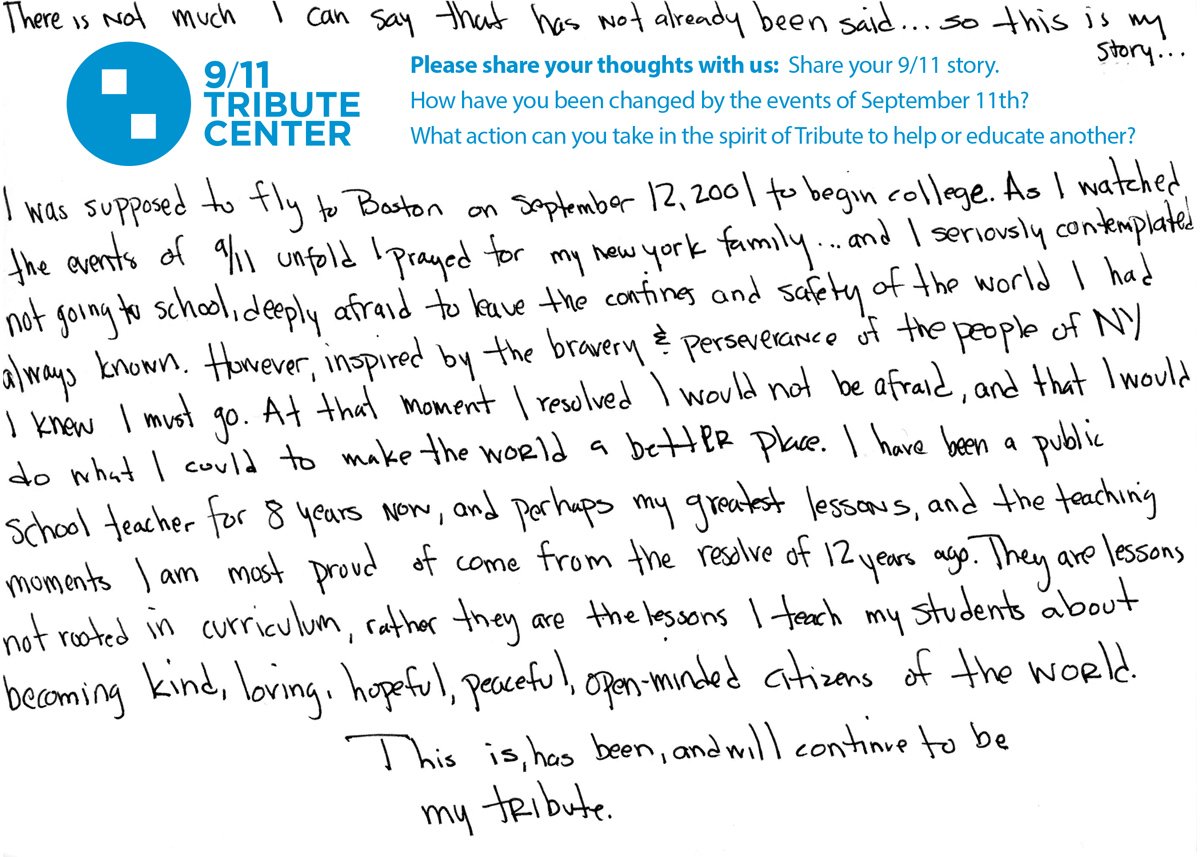 There is not much I can say that has not already been said... so this is my
story...
9/11
TRIBUTE
CENTER
Please share your thoughts with us: Share your 9/11 story.
How have you been changed by the events of September 11th?
What action can you take in the spirit of Tribute to help or educate another?
I was supposed to fly to Boston on September 12, 2001 to begin college. As I watched
the events of 9/11 unfold I prayed for my new york family... and I seriously contemplated
not going to school, deeply afraid to leave the confines and safety of the world I had
always known. However, inspired by the bravery & perseverance of the people of NY
I knew I must go. At that moment I resolved I would not be afraid, and that I would
do what I could to make the world a better place. I have been a public
school teacher for 8 years now, and perhaps my greatest lessons, and the teaching
moments I am most proud of come from the resolve of 12 years ago. They are lessons
not rooted in curriculum, rather they are the lessons I teach my students about
becoming kind, loving, hopeful, peaceful, open-minded citizens of the world.
This is, has been, and will continue to be
my tribute.